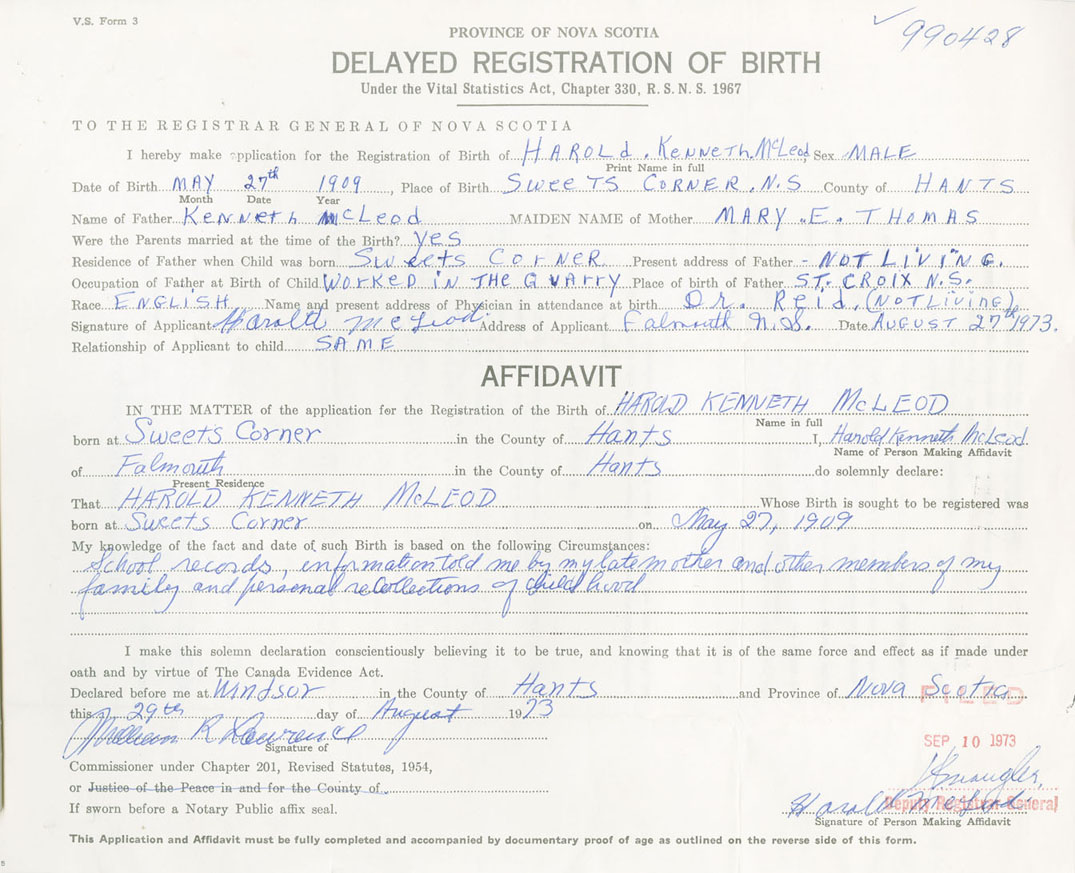 V.S. Form 3
✓ 990428
PROVINCE OF NOVA SCOTIA
DELAYED REGISTRATION OF BIRTH
Under the Vital Statistics Act, Chapter 330, R.S.N.S. 1967
TO THE REGISTRAR GENERAL OF NOVA SCOTIA
I hereby make application for the Registration of Birth of HAROLd. KENNETH. McLeod Sex MALE
Print Name in full
Date of Birth MAY 27th 1909, Place of Birth SweeTS CORNER. N.S County of HANTS
Month Date Year
Name of Father KENNETH McLeod MAIDEN NAME of Mother MARY. E. THOMAS
Were the Parents married at the time of the Birth? yes
Residence of Father when Child was born Sweets CORNER Present address of Father - NOT LIVING.
Occupation of Father at Birth of Child WORKED IN THE QUARRY Place of birth of Father ST. CROIX N.S.
Race ENGLISH Name and present address of Physician in attendance at birth Dr. Reid. (NOT LIVING)
Signature of Applicant Harold McLeod Address of Applicant Falmouth N.S. Date AUGUST 27th 1973.
Relationship of Applicant to child SAME
AFFIDAVIT
IN THE MATTER of the application for the Registration of the Birth of HAROLD KENNETH McLEOD
Name in full
born at Sweets Corner in the County of Hants I, Harold Kenneth McLeod
Name of Person Making Affidavit
of Falmouth in the County of Hants do solemnly declare:
Present Residence
That HAROLD KENNETH McLEOD Whose Birth is sought to be registered was
born at Sweets Corner on May 27, 1909
My knowledge of the fact and date of such Birth is based on the following Circumstances:
School records, information told me by my late mother and other members of my
family and personal recollections of childhood
I make this solemn declaration conscientiously believing it to be true, and knowing that it is of the same force and effect as if made under
oath and by virtue of The Canada Evidence Act.
Declared before me at Windsor in the County of Hants and Province of Nova Scotia
FILED
this 29th day of August 1973
William R Lawrence
Signature of
SEP 10 1973
Commissioner under Chapter 201, Revised Statutes, 1954,
or Justice of the Peace in and for the County of
Deputy Registrar General
Harold McLeod
If sworn before a Notary Public affix seal.
Signature of Person Making Affidavit
This Application and Affidavit must be fully completed and accompanied by documentary proof of age as outlined on the reverse side of this form.